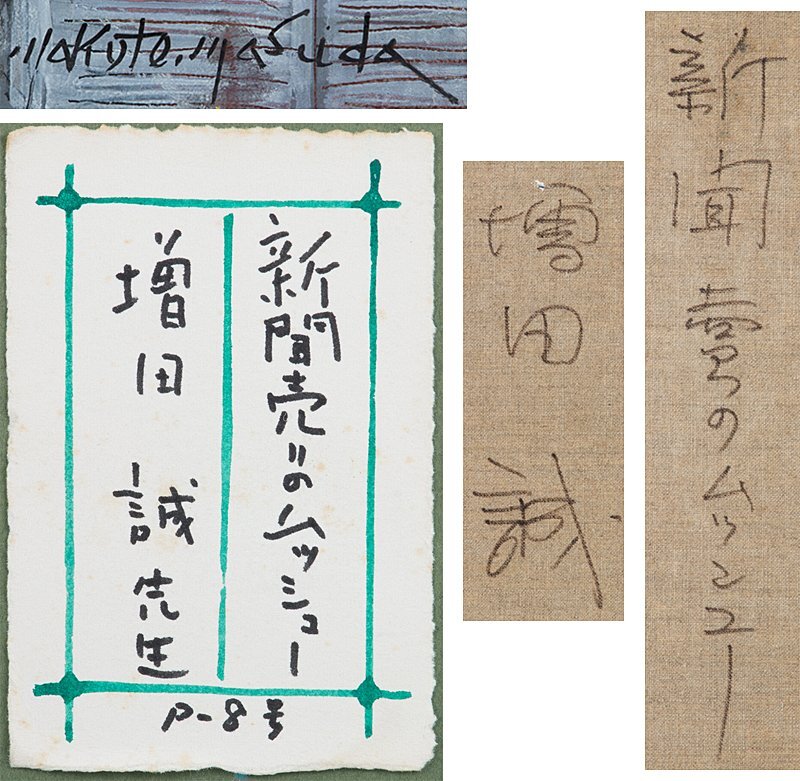 Makoto.Masuda
新聞売りのムッシュー
増田 誠先生
P-8号
増田 誠
新聞売のムッシュー